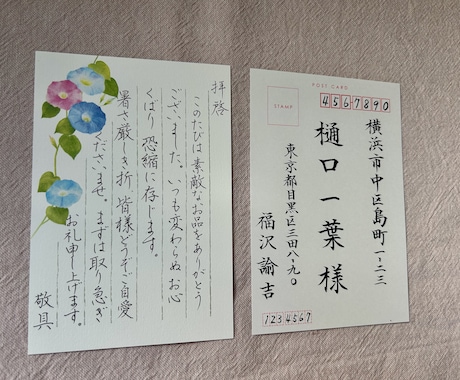 拝啓
このたびは素敵なお品をありがとう
ございました。いつも変わらぬお心
くばり恐縮に存じます。
暑さ厳しき折、皆様どうぞご自愛
くださいませ。まずは取り急ぎ
お礼申し上げます。
敬具
POST CARD
STAMP
4567890
横浜市中区島町一-二三
樋口一葉様
東京都目黒区三田八-九〇
福沢諭吉
1234567